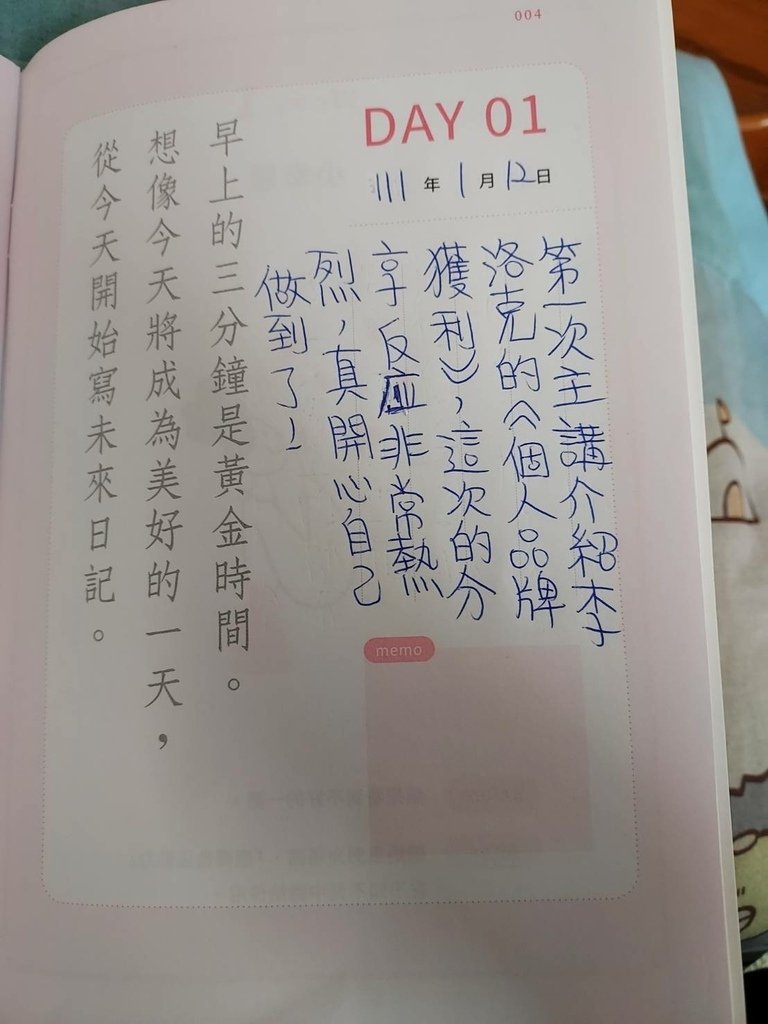 004
DAY 01
111年1月12日
第一次主講介紹李
洛克的《個人品牌
獲利》,這次的分
享反應非常熱
烈,真開心自己
做到了!
早上的三分鐘是黃金時間。
想像今天將成為美好的一天,
從今天開始寫未來日記。
memo